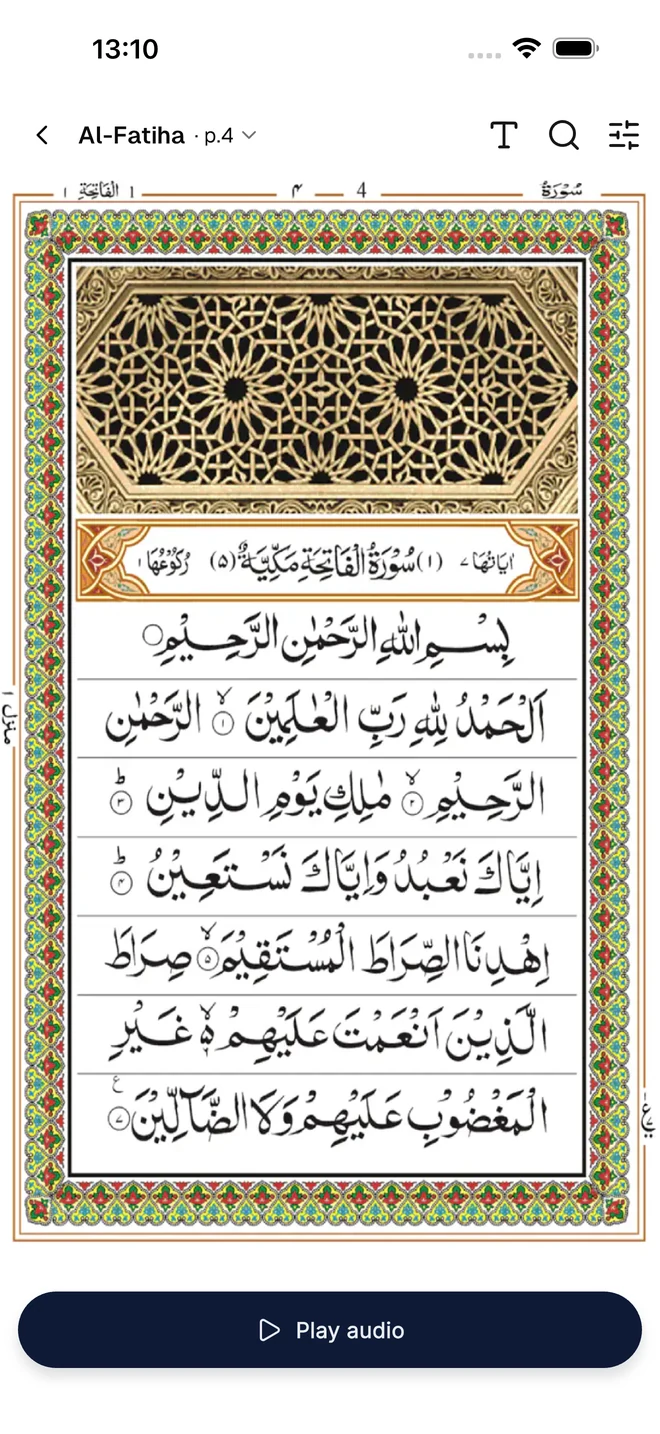 13:10
Al-Fatiha · p.4
سُوْرَةُ 4 ۴ الْفَاتِحَةِ ۱
اٰیَاتُهَا ۷ (۱) سُوْرَةُ الْفَاتِحَةِ مَكِّیَّةٌ (۵) رُكُوْعُهَا ۱
بِسْمِ اللّٰهِ الرَّحْمٰنِ الرَّحِیْمِ
اَلْحَمْدُ لِلّٰهِ رَبِّ الْعٰلَمِیْنَ ۙ۱ الرَّحْمٰنِ
الرَّحِیْمِ ۙ۲ مٰلِكِ یَوْمِ الدِّیْنِ ؕ۳
اِیَّاكَ نَعْبُدُ وَاِیَّاكَ نَسْتَعِیْنُ ؕ۴
اِهْدِنَا الصِّرَاطَ الْمُسْتَقِیْمَ ۙ۵ صِرَاطَ
الَّذِیْنَ اَنْعَمْتَ عَلَیْهِمْ ۙ۬ غَیْرِ
الْمَغْضُوْبِ عَلَیْهِمْ وَلَا الضَّآلِّیْنَ ۷
منزل ۱
Play audio